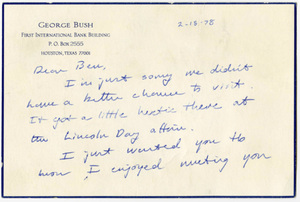 GEORGE BUSH
FIRST INTERNATIONAL BANK BUILDING
P. O. BOX 2555
HOUSTON, TEXAS 77001
2-18-78
Dear Ben,
I'm just sorry we didn't
have a better chance to visit.
It got a little hectic there at
the Lincoln Day affair.
I just wanted you to
know I enjoyed meeting you